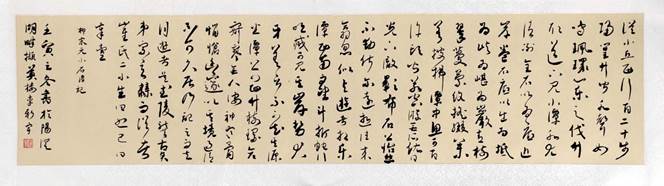 從小丘西行百二十步
隔篁竹聞水聲如
鳴珮環心樂之伐竹
取道下見小潭水尤
清冽全石以為底近
岸卷石底以出為坻
為嶼為嵁為巖青樹
翠蔓蒙絡搖綴參
差披拂潭中魚可百
許頭皆若空游無所依日
光下澈影布石上佁然
不動俶爾遠逝往來
翕忽似與遊者相樂
潭西南而望斗折蛇行
明滅可見其岸勢犬
牙差互不可知其源
坐潭上四面竹樹環合
寂寥無人凄神寒骨
悄愴幽邃以其境過清
不可久居乃記之而去
同遊者吳武陵龔古余
弟宗玄隸而從者
崔氏二小生曰恕己曰
奉壹
柳宗元小石潭記
壬寅之冬書於陽澄
湖畔